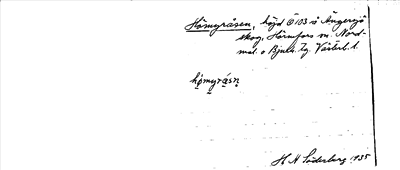 Hömyråsen, höjd Ö 103 å Ängersjö
skog, Hörnefors m. Nord-
mal. o Bjurh. Tg. Västerb. l.
hö̱myrå̱sn̥
H. N. Söderberg 1935